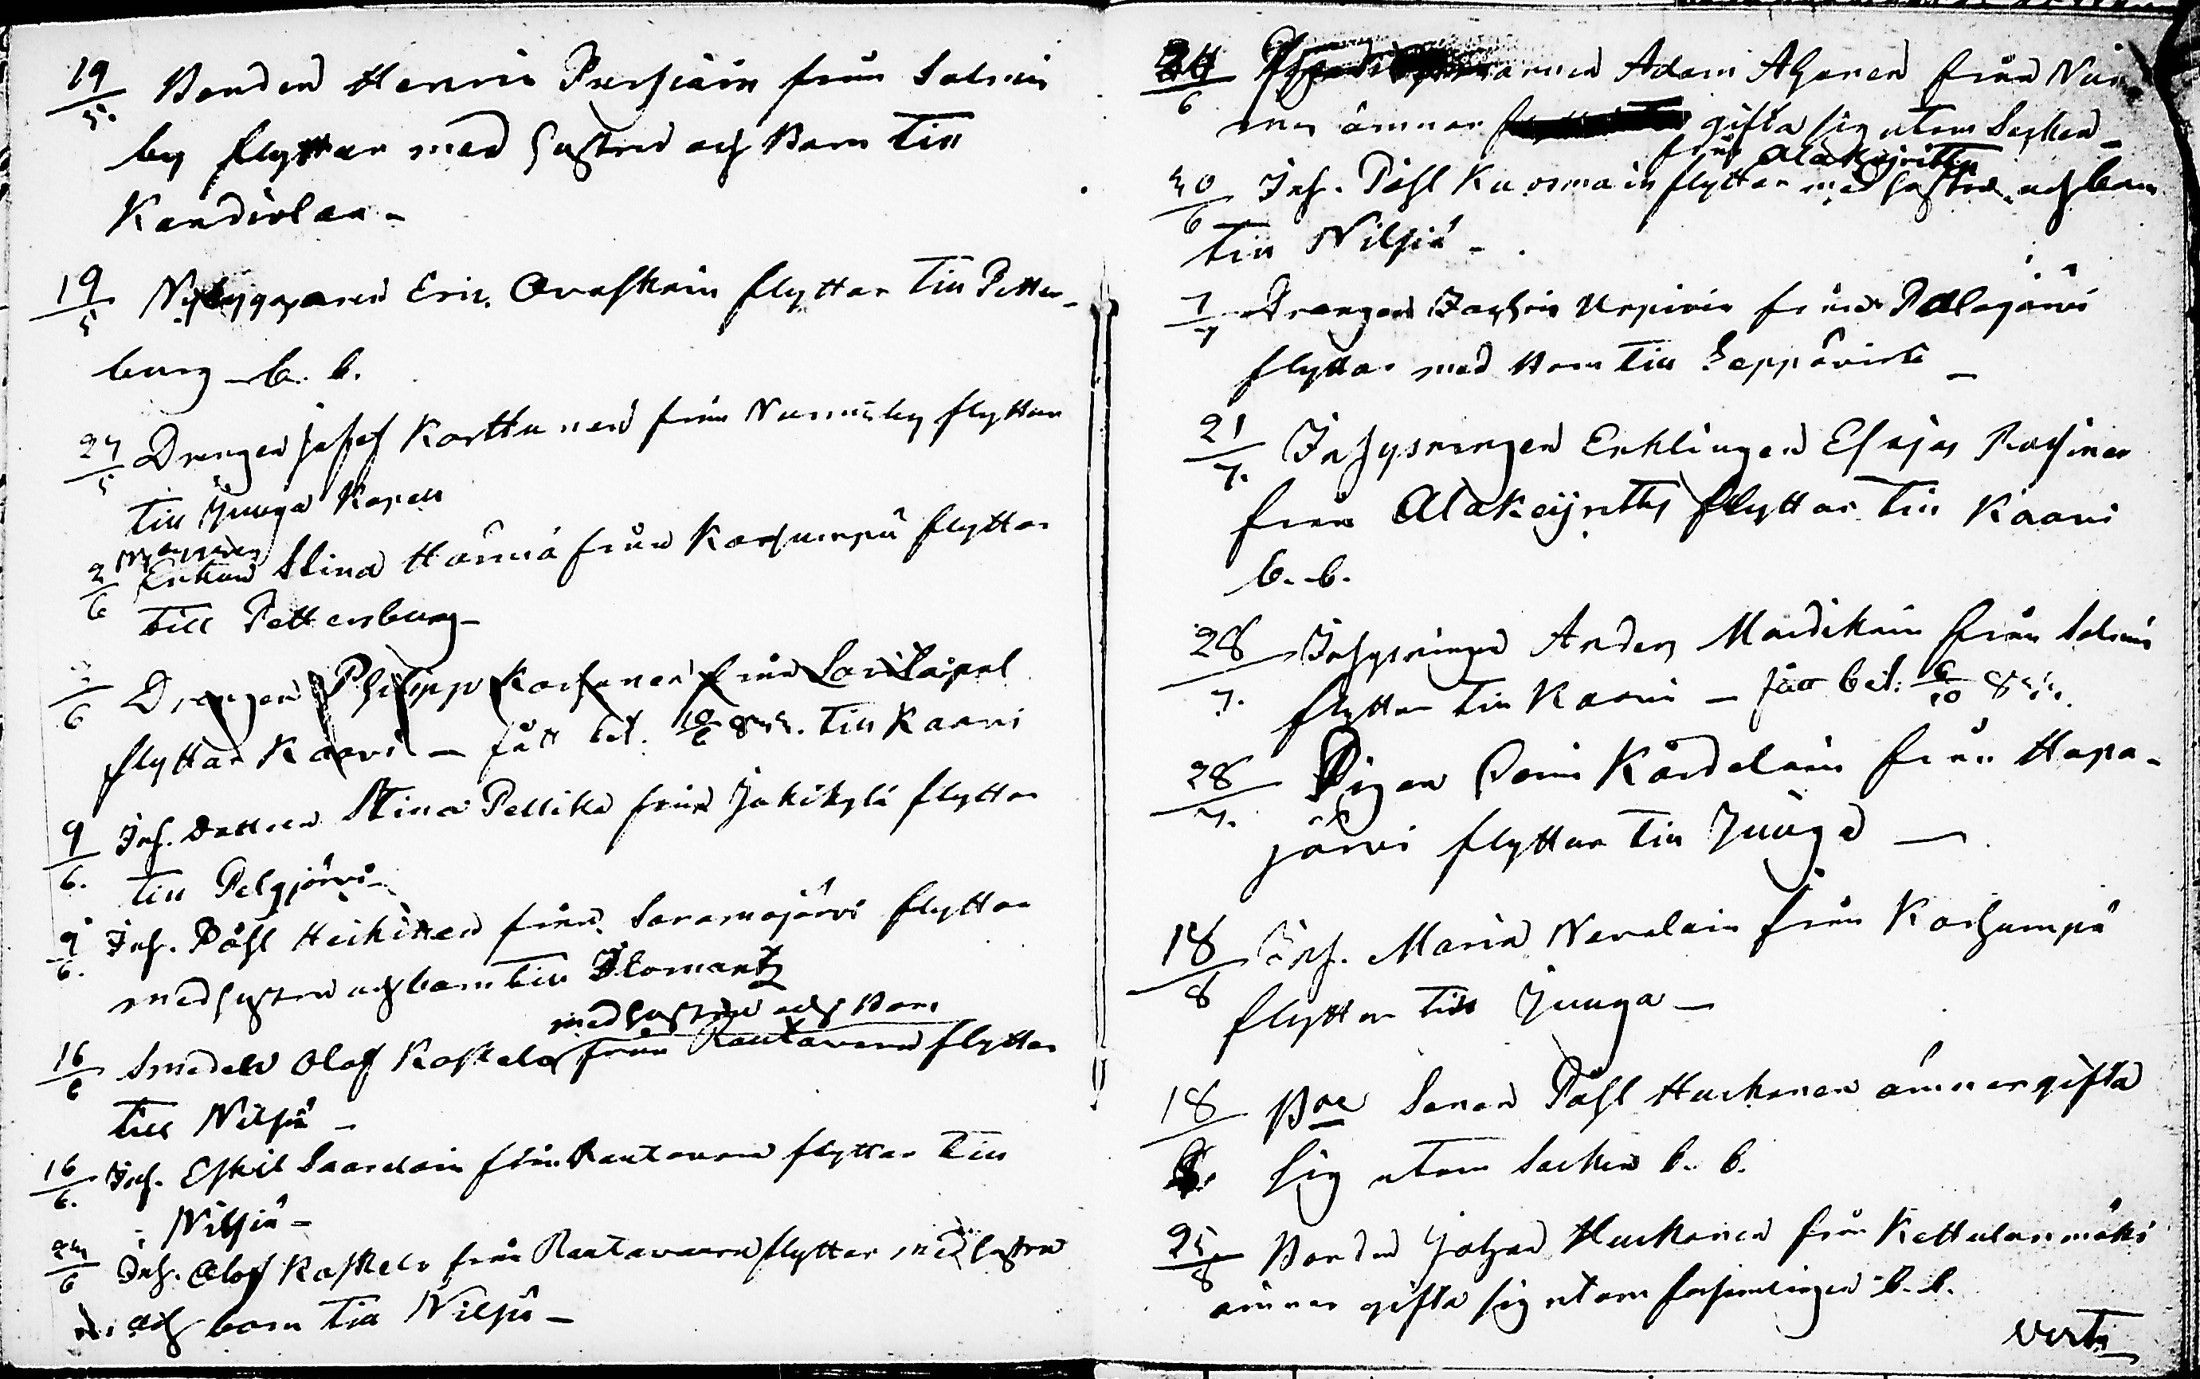 19/5. Bonden Henric Pursiain från Salmis
by flyttar med hustru och Barn till
Kandivlax -
19/5 Nybyggaren Eric Ovaskain flyttar till Petter-
burg - b. b.
27/5 Drengen Josef Korttunen från Nurmis by flyttar
till Juuga Kapell
2/6 Enkan Stina Härmä från Karhunpä flyttar
till Pettersburg -
/6 Drengen Philipp Karhanen från
flyttar Kaavi - fått bet. 10/6 till Kaavi
9/6. Inh. Dottren Stina Pellika från Jokikylä flyttar
till Pelgjärvi -
9/6. Inh. Påhl Heikinen från Saramojärvi flyttar
med hustru och barn till Ilomantz
med hustru och Barn
16/6 Smeden Olof Koskelo från Rautavara flyttar
till Nilsiä -
16/6. Inh. Eskil Saarelain från Rautavara flyttar till
Nilsiä -
/6 Inh. Olof Koskelo från Rautavaara flyttar med hustru
och barn till Nilsiä -
24/6 Adam Ahonen från Nur-
mes ämnar gifta sig utom Socken -
från Alakeyritty
30/6 Inh. Påhl Kuosmain flyttar med hustru och barn
till Nilsiä -
7/7 Drengen Zachris Urpivin från Palojärvi
flyttar med Barn till Leppävirta -
21/7. Inhysningen Enklingen Esajas
från Alakeyritty flyttar till Kaavi
b. b.
28/7. Inhysningen Anders Mardikain från Salmis
flyttar till Kaavi - fått bet: 6/10
28/7. Pigan Karin Kärdelain från Hapa-
järvi flyttar till Juuga -
18/8 Inh. Maria Nevalain från Karhunpä
flyttar till Juuga -
18/8. Bde Sonen Påhl Huskonen ämnar gifta
sig utom Socken b. b.
25/8 Bonden Johan Huskonen från Kettulanmäki
ämnar gifta sig utom församlingen b. b.
verte